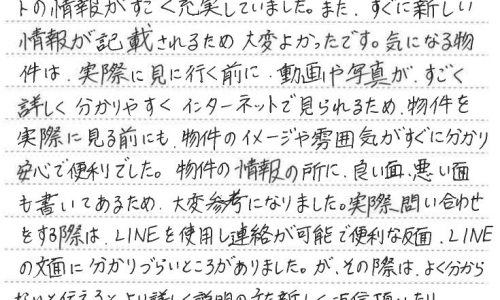 トの情報がすごく充実していました。また、すぐに新しい
情報が記載されるため大変よかったです。気になる物
件は、実際に見に行く前に、動画や写真が、すごく
詳しく分かりやすくインターネットで見られるため、物件を
実際に見る前にも、物件のイメージや雰囲気がすぐに分かり
安心で便利でした。物件の情報の所に、良い面、悪い面
も書いてあるため、大変参考になりました。実際、問い合わせ
をする際は、LINEを使用し連絡が可能で便利な反面、LINE
の文面に分かりづらいところがありました。が、その際は、よく分から
ないと伝えるとより詳しく説明の